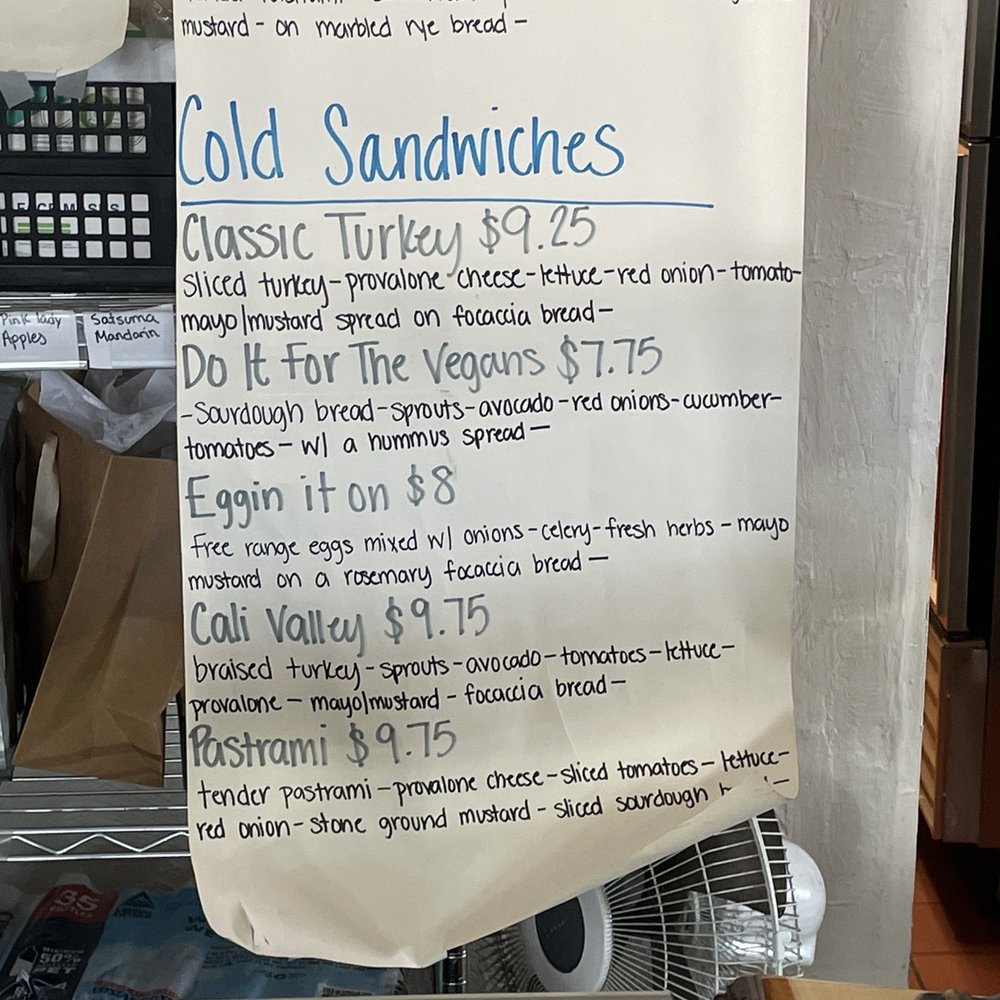 mustard - on marbled rye bread -
Cold Sandwiches
Classic Turkey $9.25
sliced turkey - provalone cheese - lettuce - red onion - tomato -
mayo/mustard spread on focaccia bread -
Do It For The Vegans $7.75
- Sourdough bread - sprouts - avocado - red onions - cucumber -
tomatoes - w/ a hummus spread -
Eggin it on $8
Free range eggs mixed w/ onions - celery - fresh herbs - mayo
mustard on a rosemary focaccia bread -
Cali Valley $9.75
braised turkey - sprouts - avocado - tomatoes - lettuce -
provalone - mayo/mustard - focaccia bread -
Pastrami $9.75
tender pastrami - provalone cheese - sliced tomatoes - lettuce -
red onion - stone ground mustard - sliced sourdough
Pink lady
Apples
Satsuma
Mandarin
35
50%